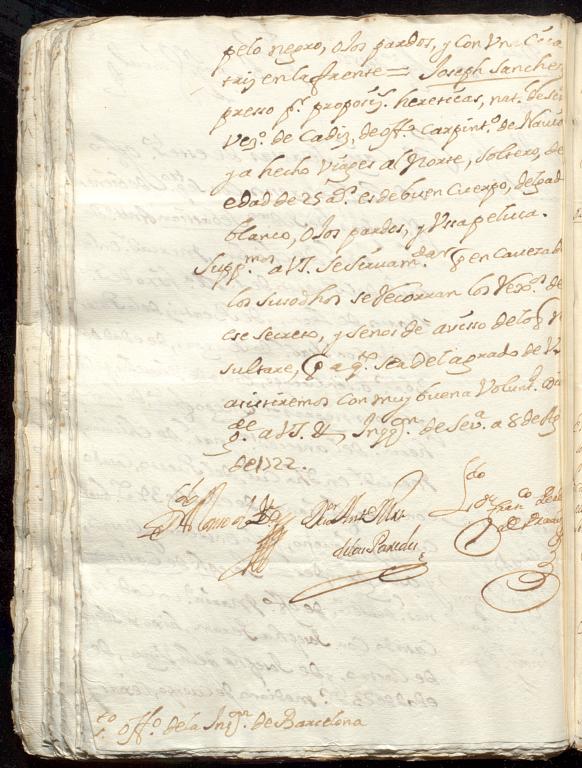 pelo negro, ojos pardos, y con Una Cica
triz en la frente = Joseph Sanches
presso pr. proposis. hereticas, natl. de Sev
Vezo. de Cadiz, de offo. Carpinto. de Navio
y a hecho Viages al Norte, soltero, de
edad de 25 as. es de buen Cuerpo, delgad
blanco, ojos pardos, y Usa peluca.
Suppmos. a VS. se sirva mandar q en caveza de
los susodhos se recorran los Rexos. de
ese secreto, y se nos de avisso de lo q re
sultare, q a qto. sea del agrado de VS
asistiremos con muy buena Volunt.
ge. a VS. &a Inqqon. de Seva. a 8 de Ag
de 1722.
Paredes
sto. offo. de la Inqn. de Barcelona